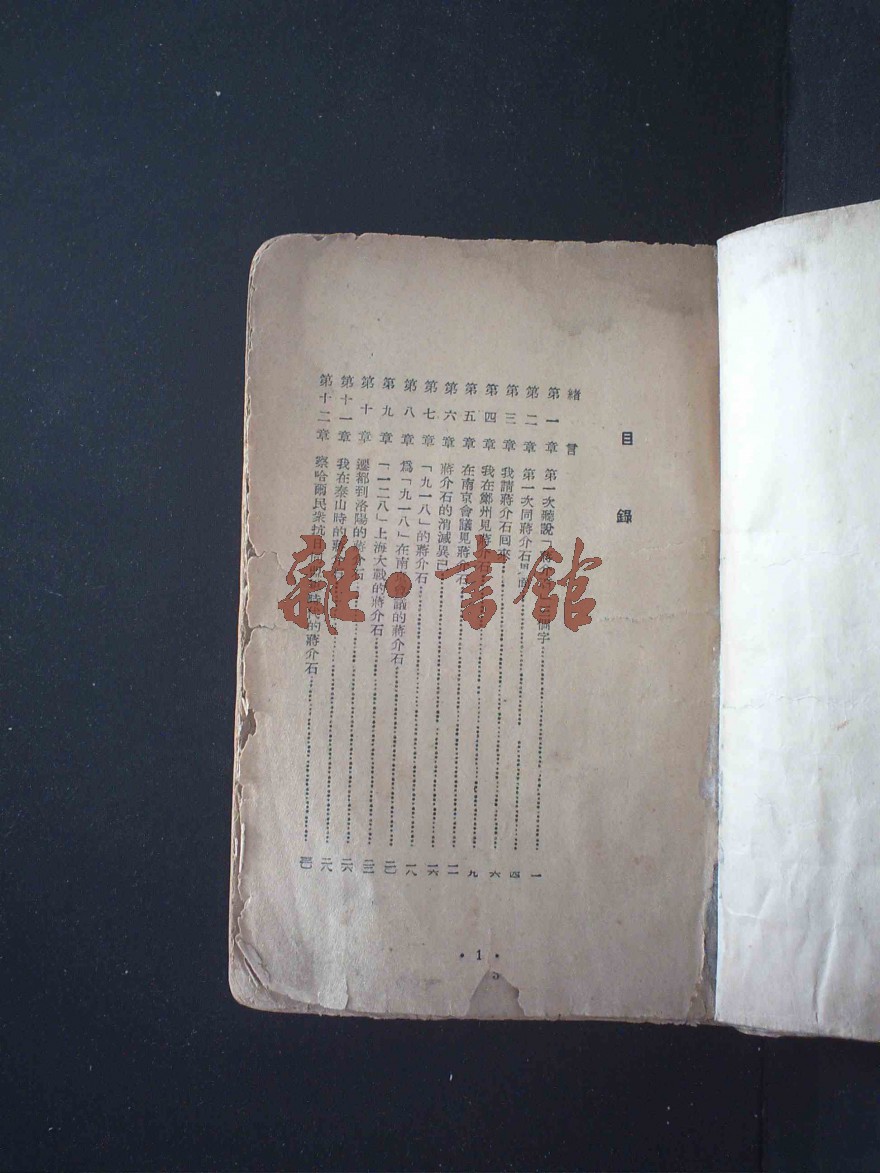 目錄
緒言
第一章 第一次聽說「 個字 一
第二章 第一次同蔣介石 四
第三章 我請蔣介石回來 六
第四章 我在鄭州見蔣介石 九
第五章 在南京會議見蔣 石 一二
第六章 蔣介石的消滅異己 一六
第七章 「九一八」的蔣介石 一八
第八章 爲「九一八」在南京會議的蔣介石
第九章 「一二八」上海大戰的蔣介石 二三
第十章 遷都到洛陽的蔣介石 二六
第十一章 我在泰山時的蔣介 二八
第十二章 察哈爾民衆抗日同 時代的蔣介石
• 1 •
雜·書館